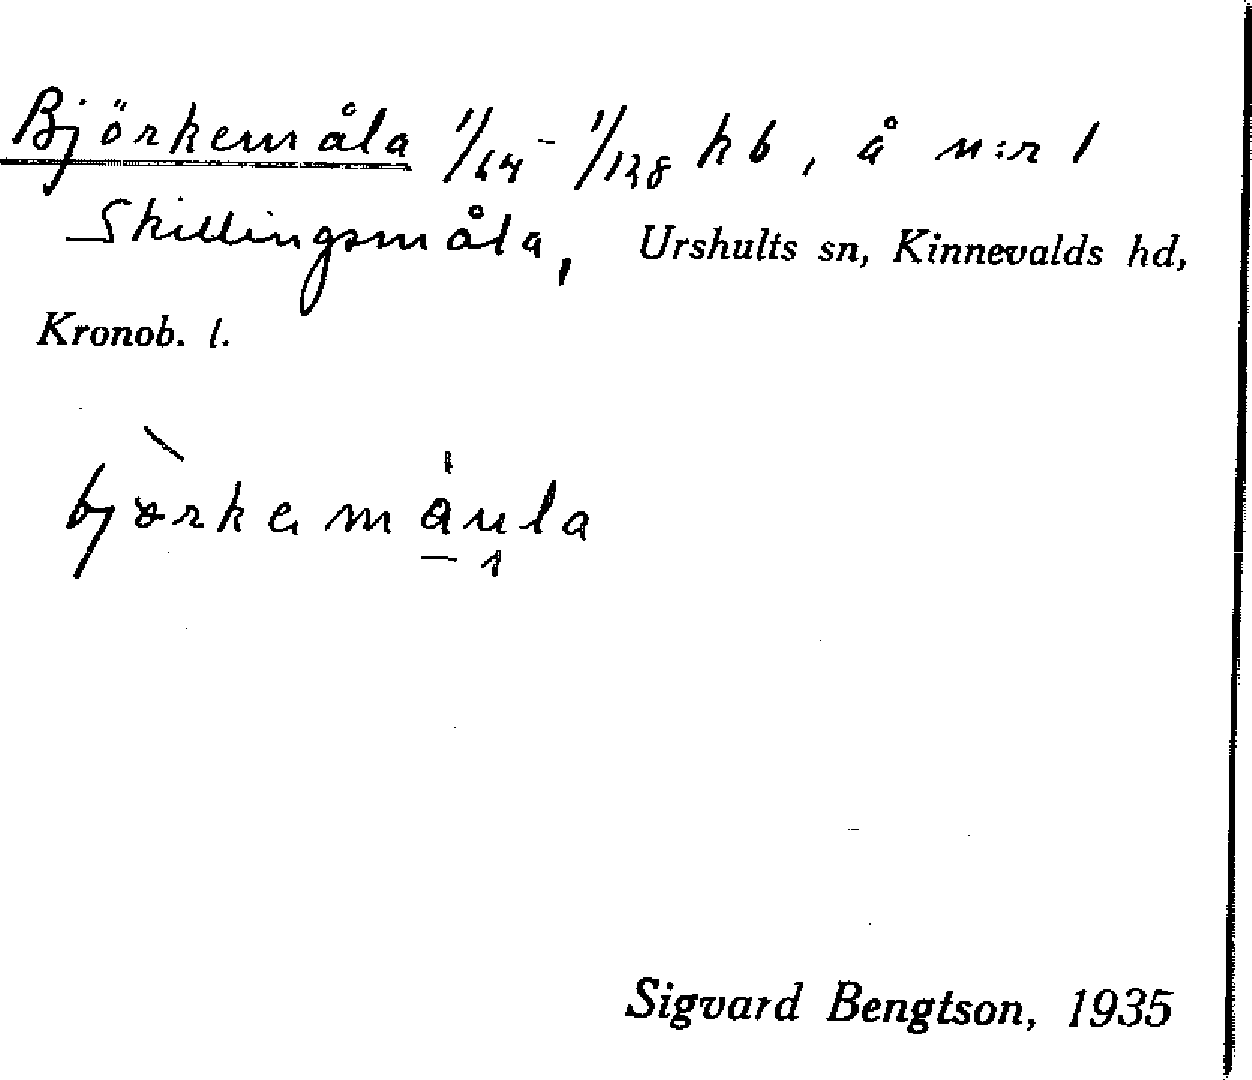 Björkemåla 1/64 - 1/128 hb, å n:r 1
Skillingsmåla, Urshults sn, Kinnevalds hd,
Kronob. l.
björkemaula
Sigvard Bengtson, 1935